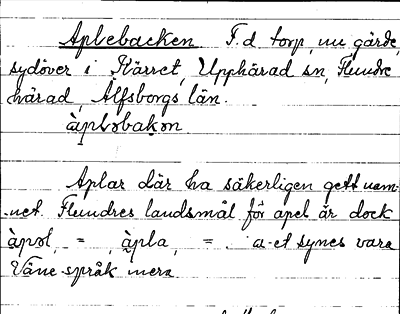 Aplebacken F.d torp, nu gärde,
sydöver i Kärret, Upphärad sn, Flundre
härad, Älfsborgs län.
àpləbakən
Aplar där ha säkerligen gett nam-
net. Flundres landsmål för apel är dock
àpəl, = , àpla, = . a-et synes vara
Väne-språk mera